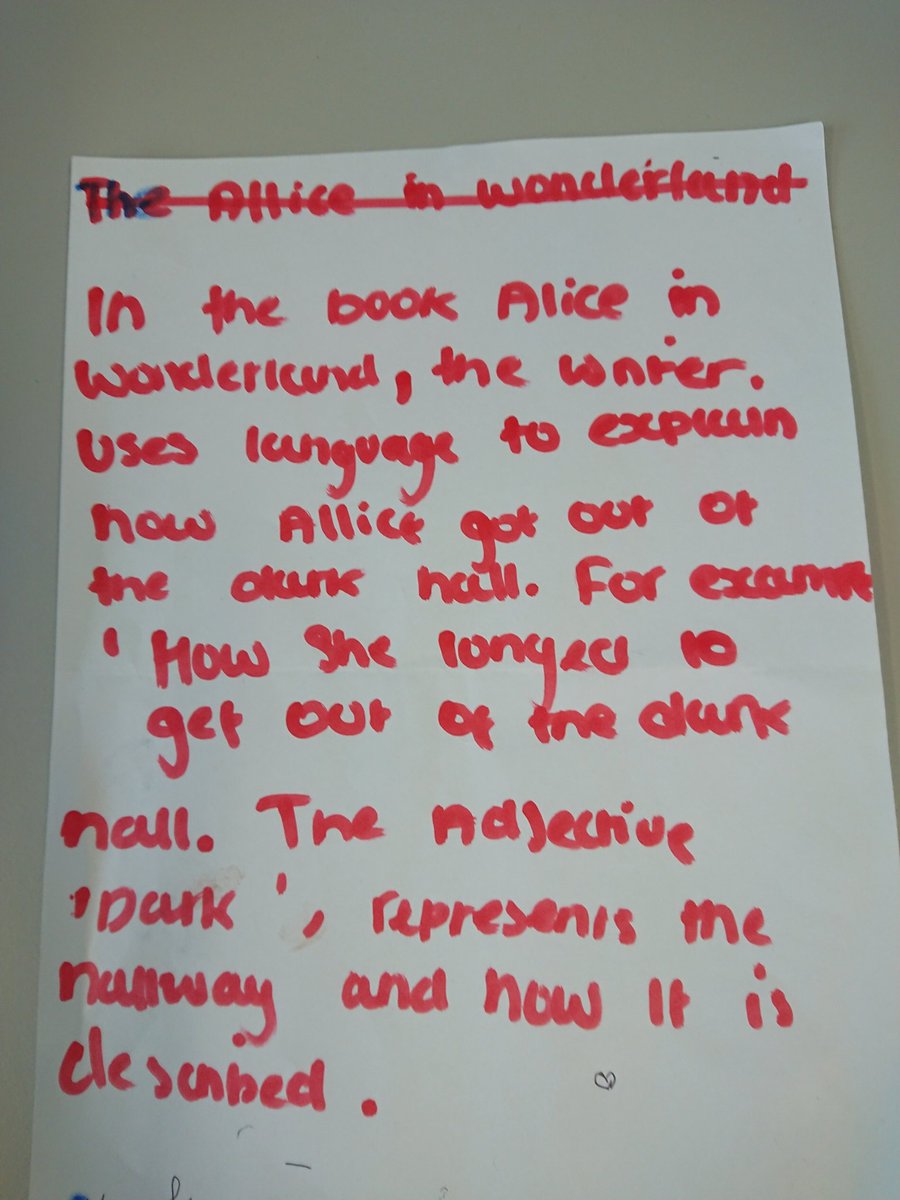 The Allice in wonderland
In the book Alice in
wonderland, the writer.
uses language to explain
how Allice got out of
the dark hall. For example
' How she longed to
get out of the dark
hall. The Adjective
'Dark', represents the
hallway and how It is
described.